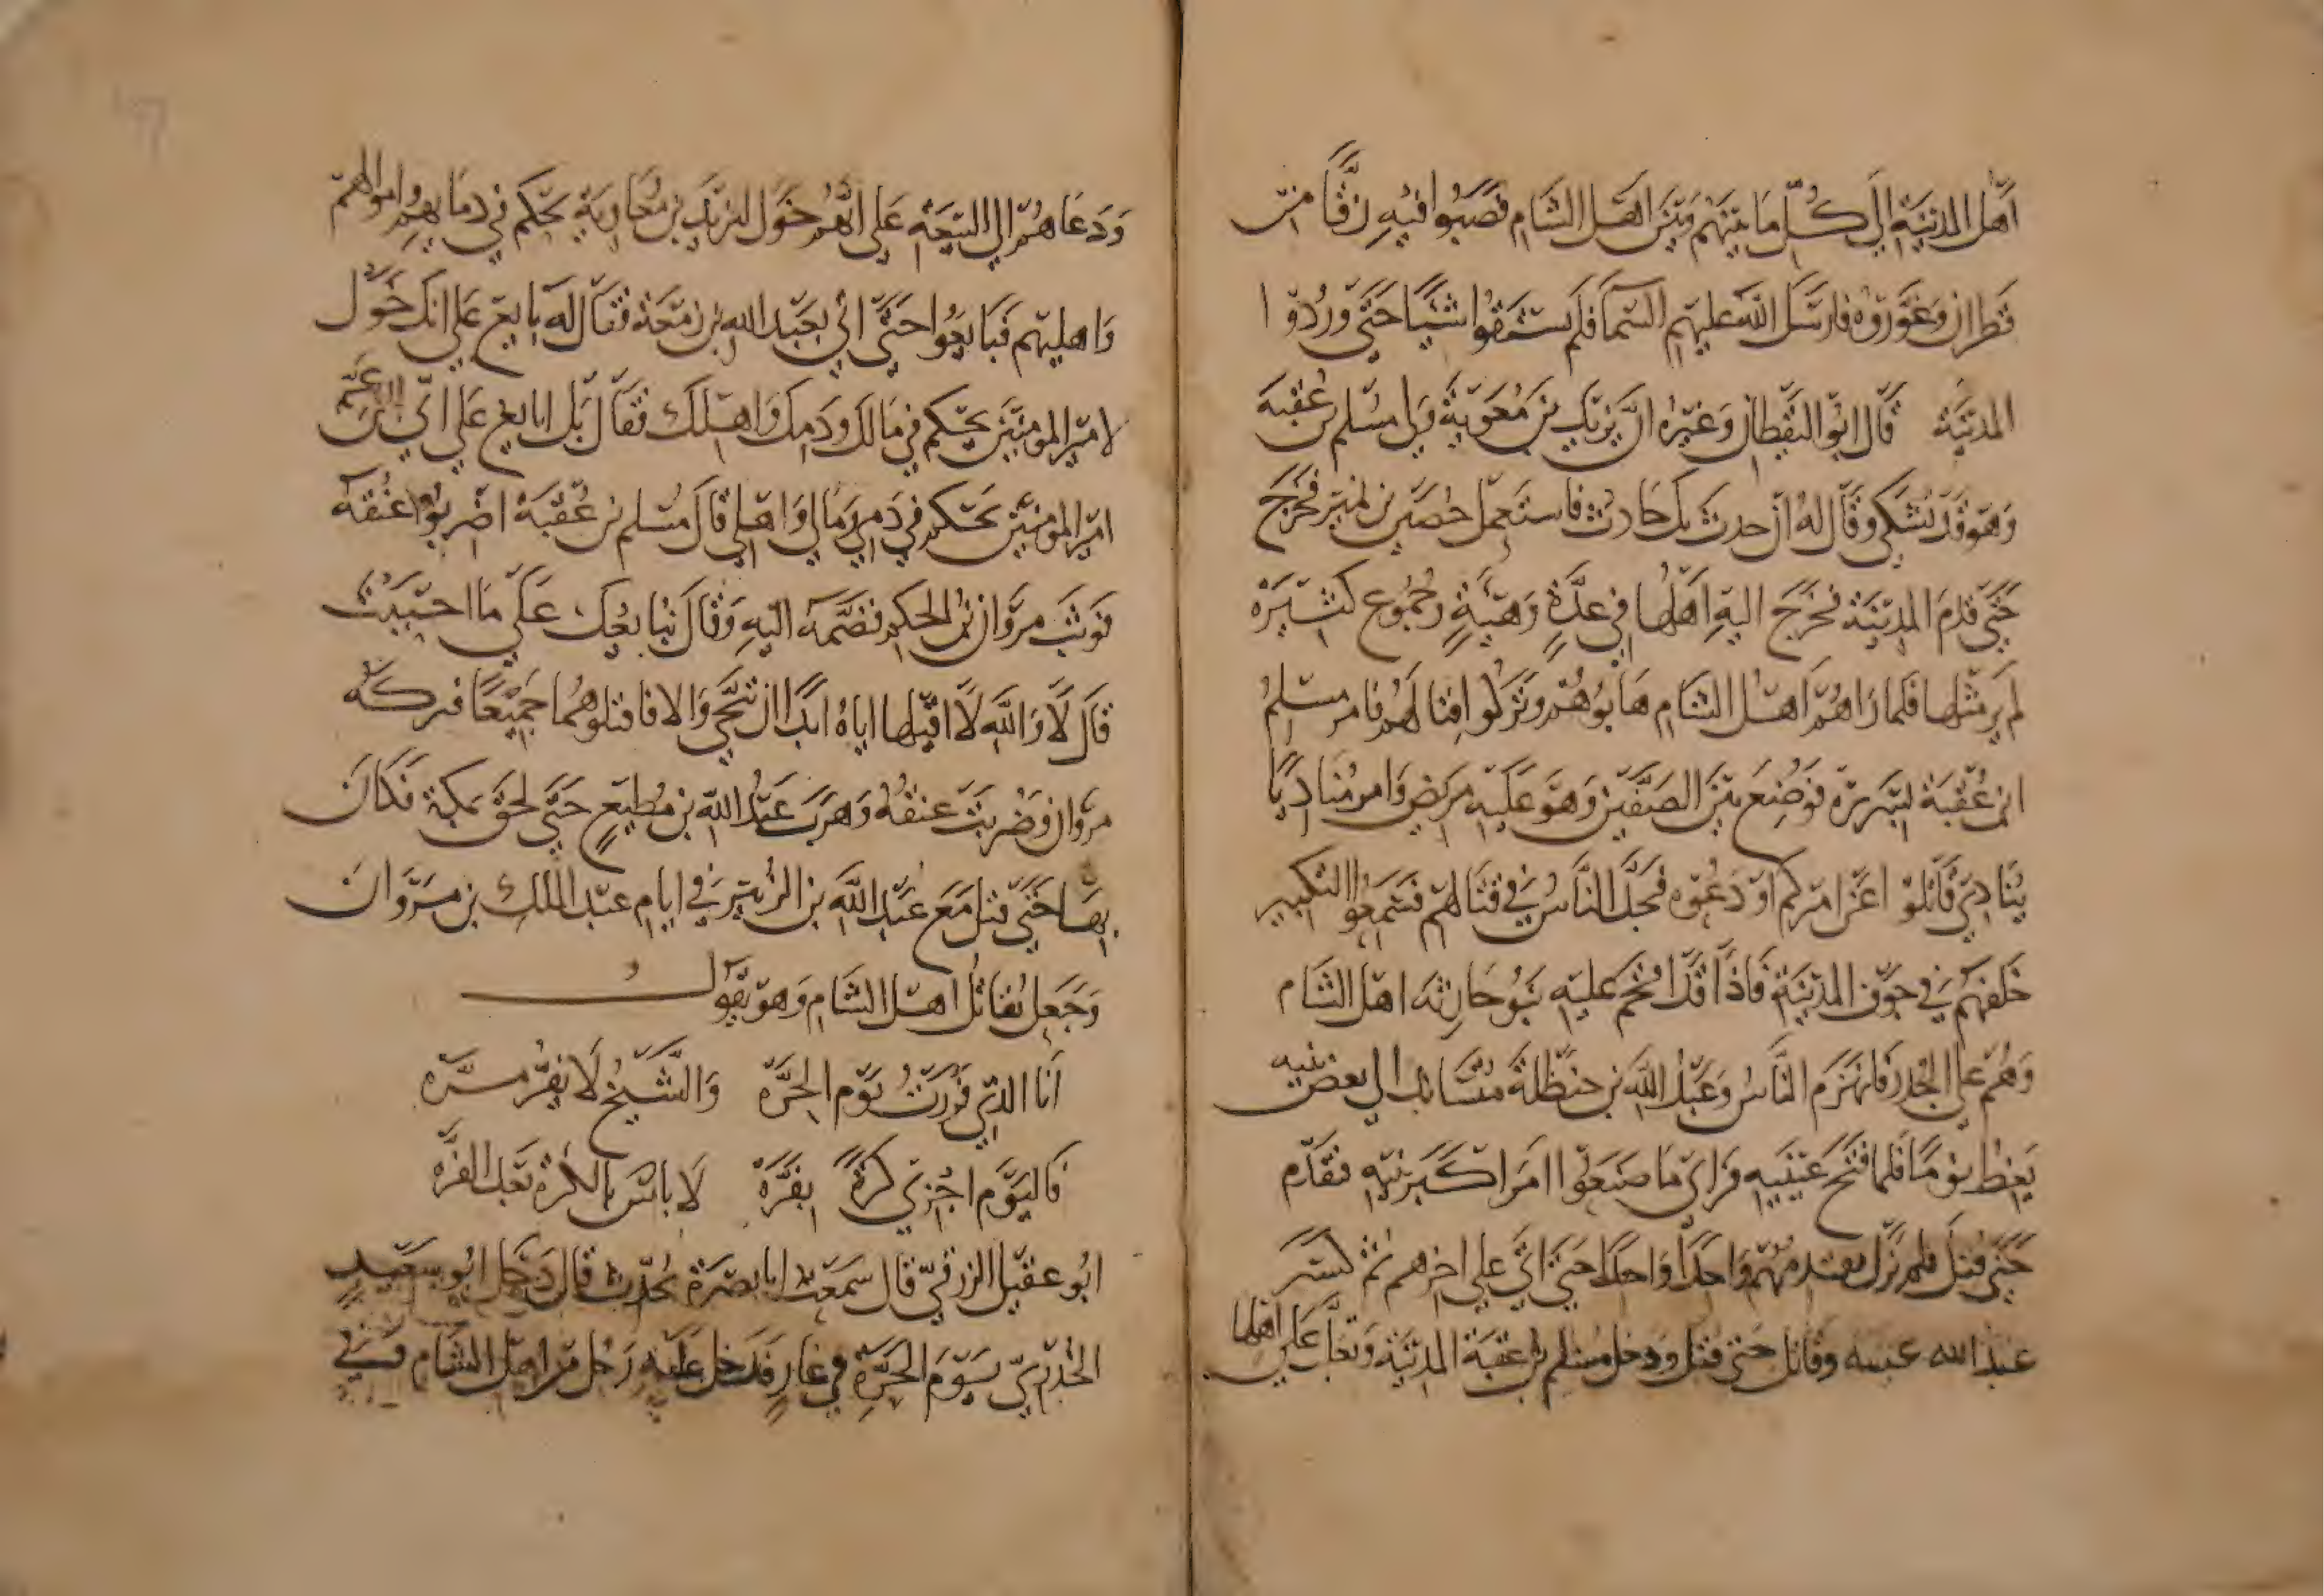 اهل المدينة الي كل ما بينهم وبين اهل الشام فصبوا فيه زقا من
قطران وغوروه فارسل الله عليهم السما فلم يستقوا شيا حتي وردوا
المدينة قال ابو اليقظان وغيره ان يزيد بن معوية ولي مسلم بن عقبة
وهو قد اشتكي وقال له ان حدث بك حادث فاستعمل حصين بن نمير فخرج
حتي قدم المدينة فخرج اليه اهلها في عدة وهيئة وجموع كثيرة
لم ير مثلها فلما راهم اهل الشام هابوهم وتركوا قتالهم فامر مسلم
ابن عقبة بسريره فوضع بين الصفين وهو عليه مريض وامر مناديا
ينادي قاتلو اعن اميركم او دعوه فجد الناس في قتالهم فسمعوا التكبير
خلفهم في جوف المدينة فاذا قد اقتحم عليه بنو حارثه اهل الشام
وهم علي الجدر فانهزم الناس وعبد الله بن حنظلة متساند الي بعض بنيه
يغط نوما فلما فتح عينيه وراي ما صنعوا امر اكبر بنيه فتقدم
حتي قتل فلم يزل يقدمهم واحدا واحدا حتي اتي علي اخرهم ثم كسر
عبد الله وقاتل حتي قتل ودخل مسلم بن عقبة المدينة وتغلب علي اهلها
ودعاهم الي البيعة علي انهم خول ليزيد بن معاوية يحكم في دمايهم واموالهم
واهليهم فبايعوا حتي اتي بعبد الله بن زمعة فقال له بايع علي انك خول
لامير المومنين يحكم في مالك ودمك واهلك فقال بل ابايع علي اني ابن عم
امير المومنين يحكم في دمي ومالي واهلي قال مسلم بن عقبة اضربوا عنقه
فوثب مروان بن الحكم فضمه اليه وقال نبايعك علي ما احببت
قال لا والله لا اقيلها اياه ابدا ان تنحي والا فاقتلوهما جميعا فتركه
مروان وضربت عنقه وهرب عبد الله بن مطيع حتي لحق بمكة فكان
بها حتي قتل مع عبد الله بن الزبير في ايام عبد الملك بن مروان
وجعل يقاتل اهل الشام وهو يقول
انا الذي فررت يوم الحره والشيخ لا يفر مره
فاليوم اجزي كرة بفره لا باس بالكرة بعد الفره
ابو عقيل الزرقي قال سمعت ابا بصرة يحدث قال دخل ابو سعيد
الخدري يوم الحرة في غار فدخل عليه رجل من اهل الشام وفي